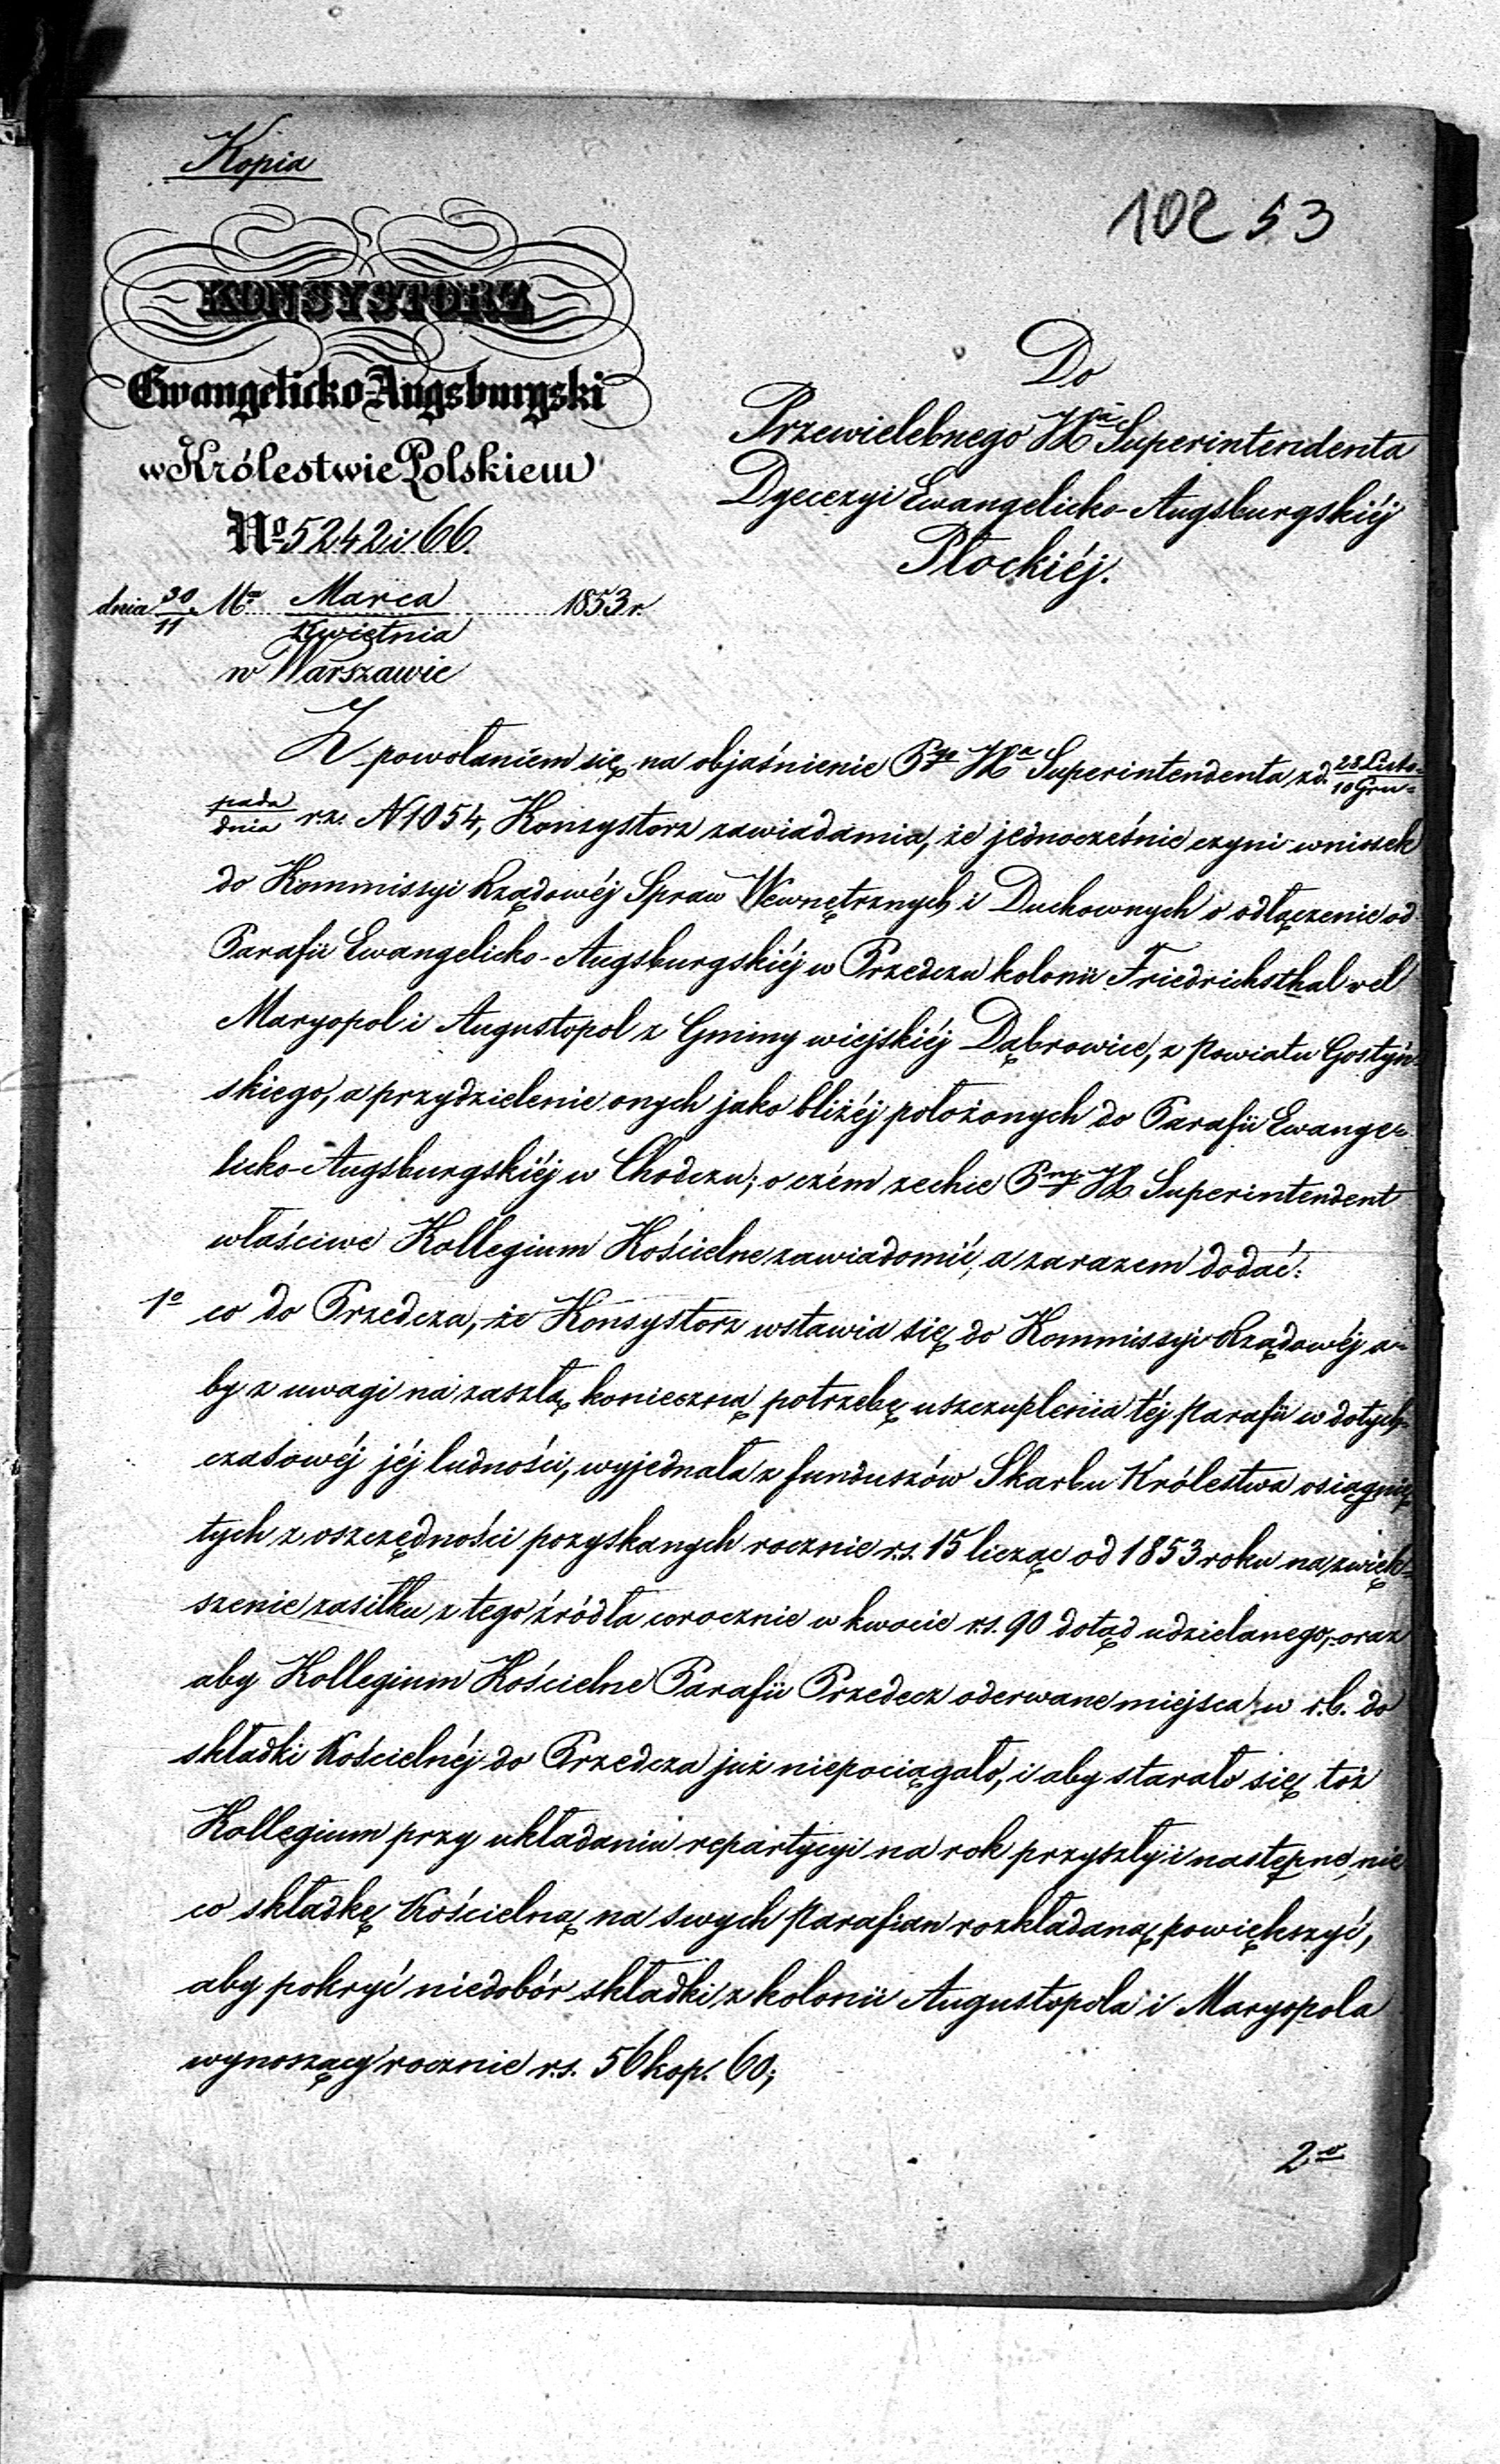 Kopia
102 53
KONSYSTORZ
Ewangelicko-Augsburgski
w Królestwie Polskiem
No 5242 i 66.
dnia 30/11 Mca Marca/Kwietnia 1853 r.
w Warszawie
Do
Przewielebnego Xa Superintendenta
Dyecezyi Ewangelicko-Augsburgskiéj
Płockiéj.
Z powołaniem się na objaśnienie Pgo Xa Superintendenta z d. 28 Listo-/10 Gru-
pada/dnia r.z. N 1054, Konsystorz zawiadamia, że jednocześnie czyni wniosek
do Kommissyi Rządowéj Spraw Wewnętrznych i Duchownych o odłączenie od
Parafii Ewangelicko-Augsburgskiéj w Przedczu kolonii Friedrichsthal vel
Maryopol i Augustopol z Gminy wiejskiéj Dąbrowice, z Powiatu Gostyń-
skiego, a przydzielenie onych jako bliżéj położonych do Parafii Ewange-
licko-Augsburgskiéj w Chodczu; o czém zechce Pny X Superintendent
właściwe Kollegium Kościelne zawiadomić, a zarazem dodać:
1o co do Przedcza, że Konsystorz wstawia się do Kommissyi Rządowéj a-
by z uwagi na zaszłą konieczną potrzebę uszczuplenia téj Parafii w dotych-
czasowéj jéj ludności, wyjednała z funduszów Skarbu Królestwa osiągnię-
tych z oszczędności pozyskanych rocznie r.s. 15 licząc od 1853 roku na zwięk-
szenie zasiłku z tego źródła corocznie w kwocie r.s. 90 dotąd udzielanego, oraz
aby Kollegium Kościelne Parafii Przedecz oderwane miejsca w r.b. do
składki Kościelnéj do Przedcza już niepociągało, i aby starało się toż
Kollegium przy układaniu repartycyi na rok przyszły i następne, nie
co składkę Kościelną na swych Parafian rozkładaną powiększyć,
aby pokryć niedobór składki z kolonii Augustopola i Maryopola
wynoszący rocznie r.s. 56 kop. 60;
2o